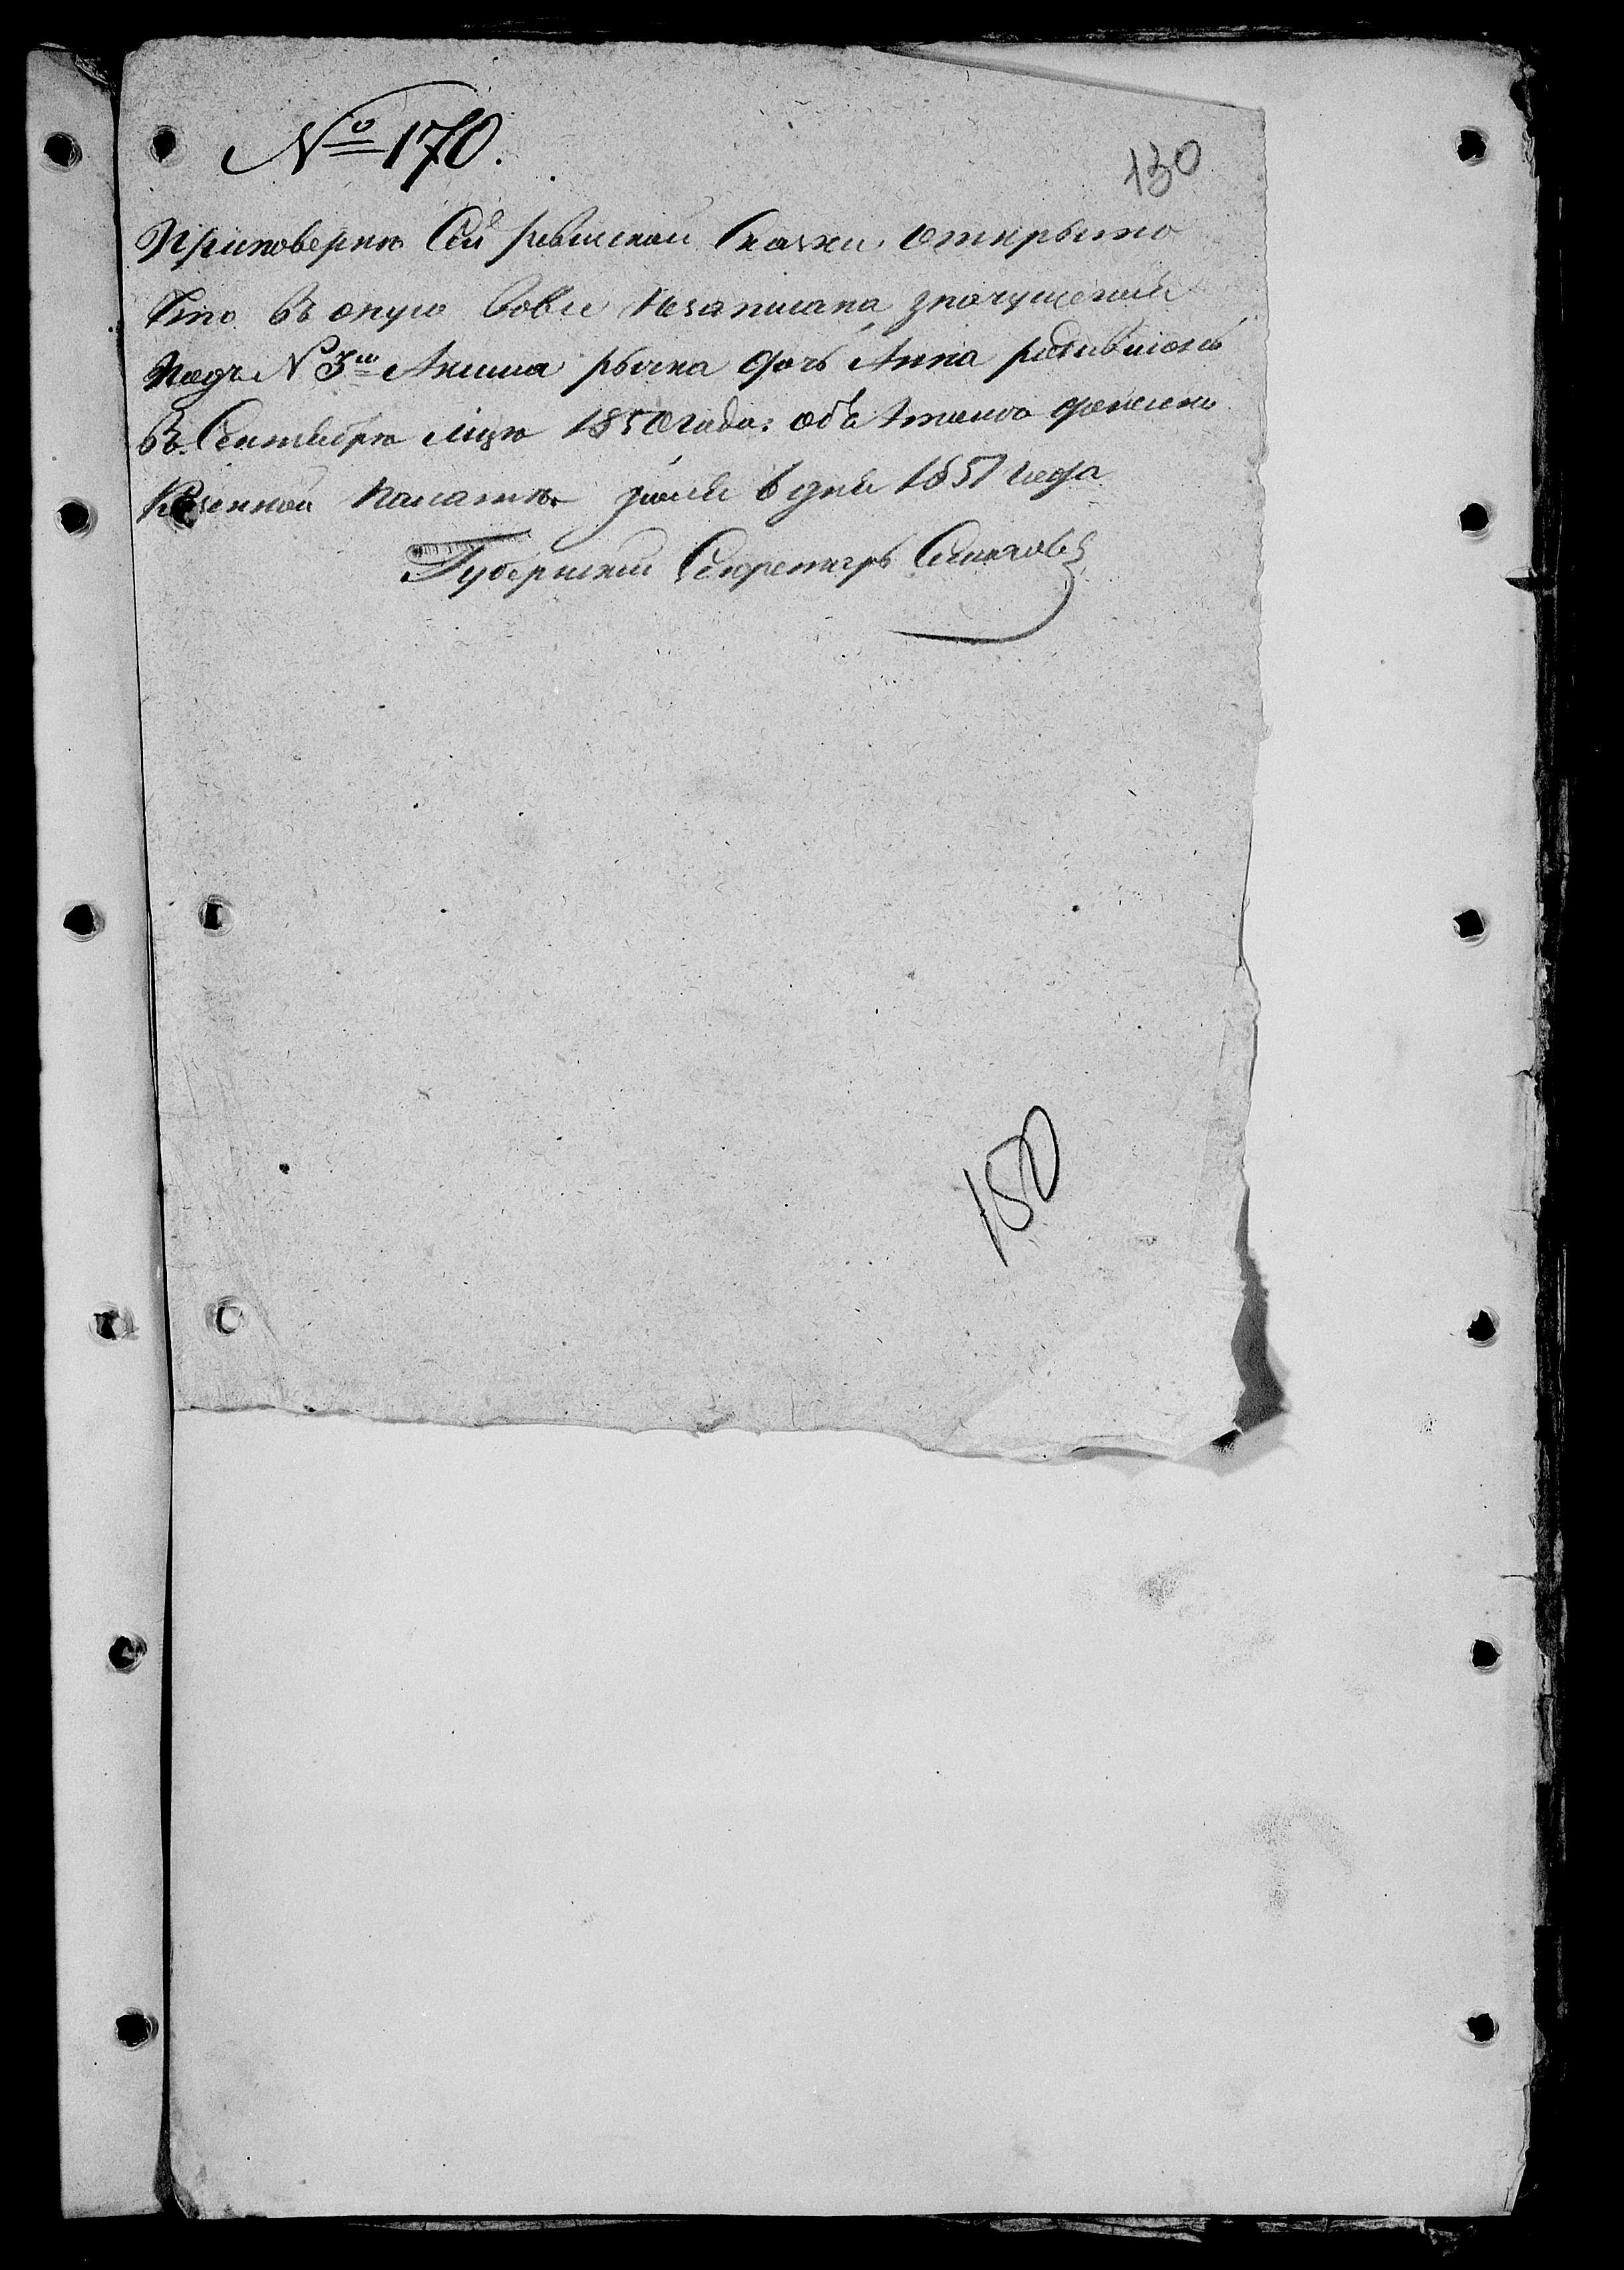 № 170.
130
Приповерки Сей ривиской Сказки открыто
Что въ оную вовсе незаписана значущегося
подъ N 3ш Акима рычка дочь Анна родившаясь
въ Сентябре мцѣ 1850 года: объ этомъ донесено
Казенной палатѣ 6 дня 1851 года
Губернский Секретарь
150